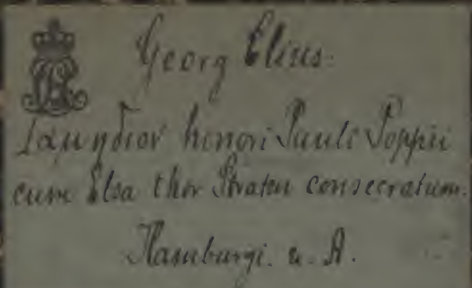 Georg Elius:
Γαμηδιον honori Pauli Poppii
cum Elsa ther Straten consecratum.
Hamburgi. u. A.